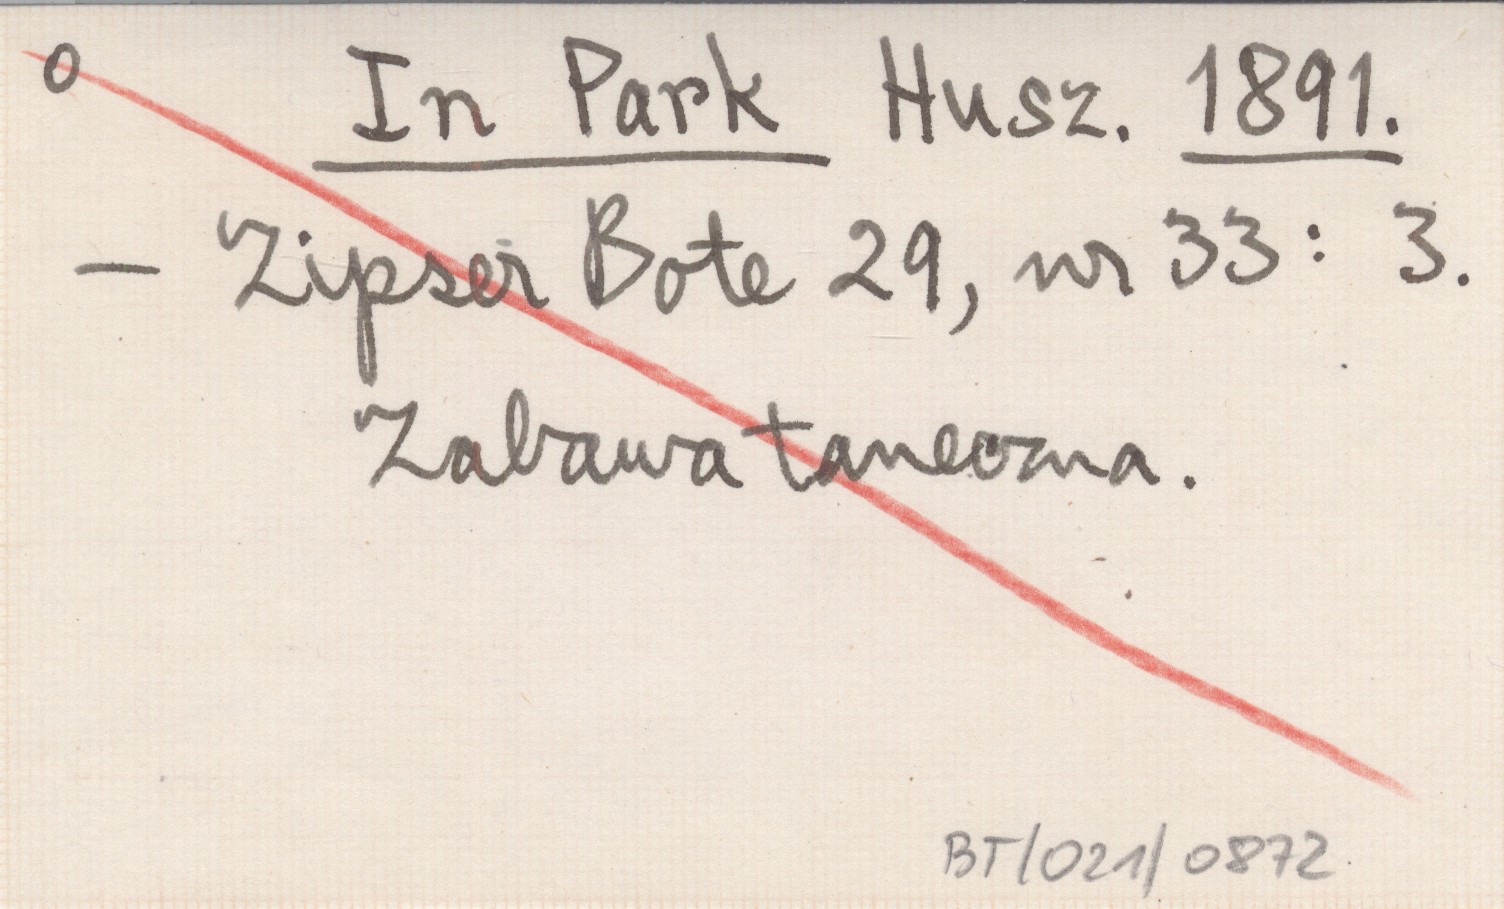 o In Park Husz. 1891.
— Zipser Bote 29, nr 33: 3.
Zabawa taneczna.
BT/021/0872